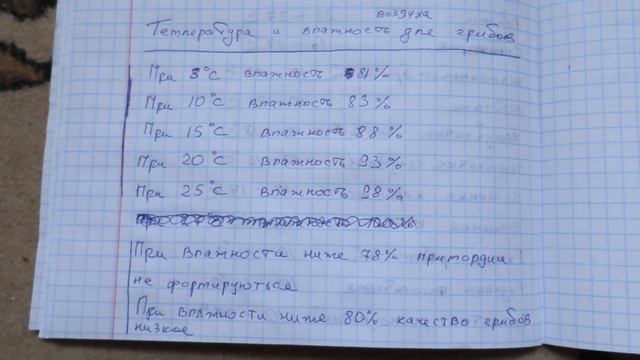 воздуха
Температура и влажность для грибов
При 8°C влажность 81%
При 10°C влажность 83%
При 15°C влажность 88%
При 20°C влажность 93%
При 25°C влажность 98%
При влажности ниже 78% примордии
не формируються
При влажности ниже 80% качество грибов
низкое